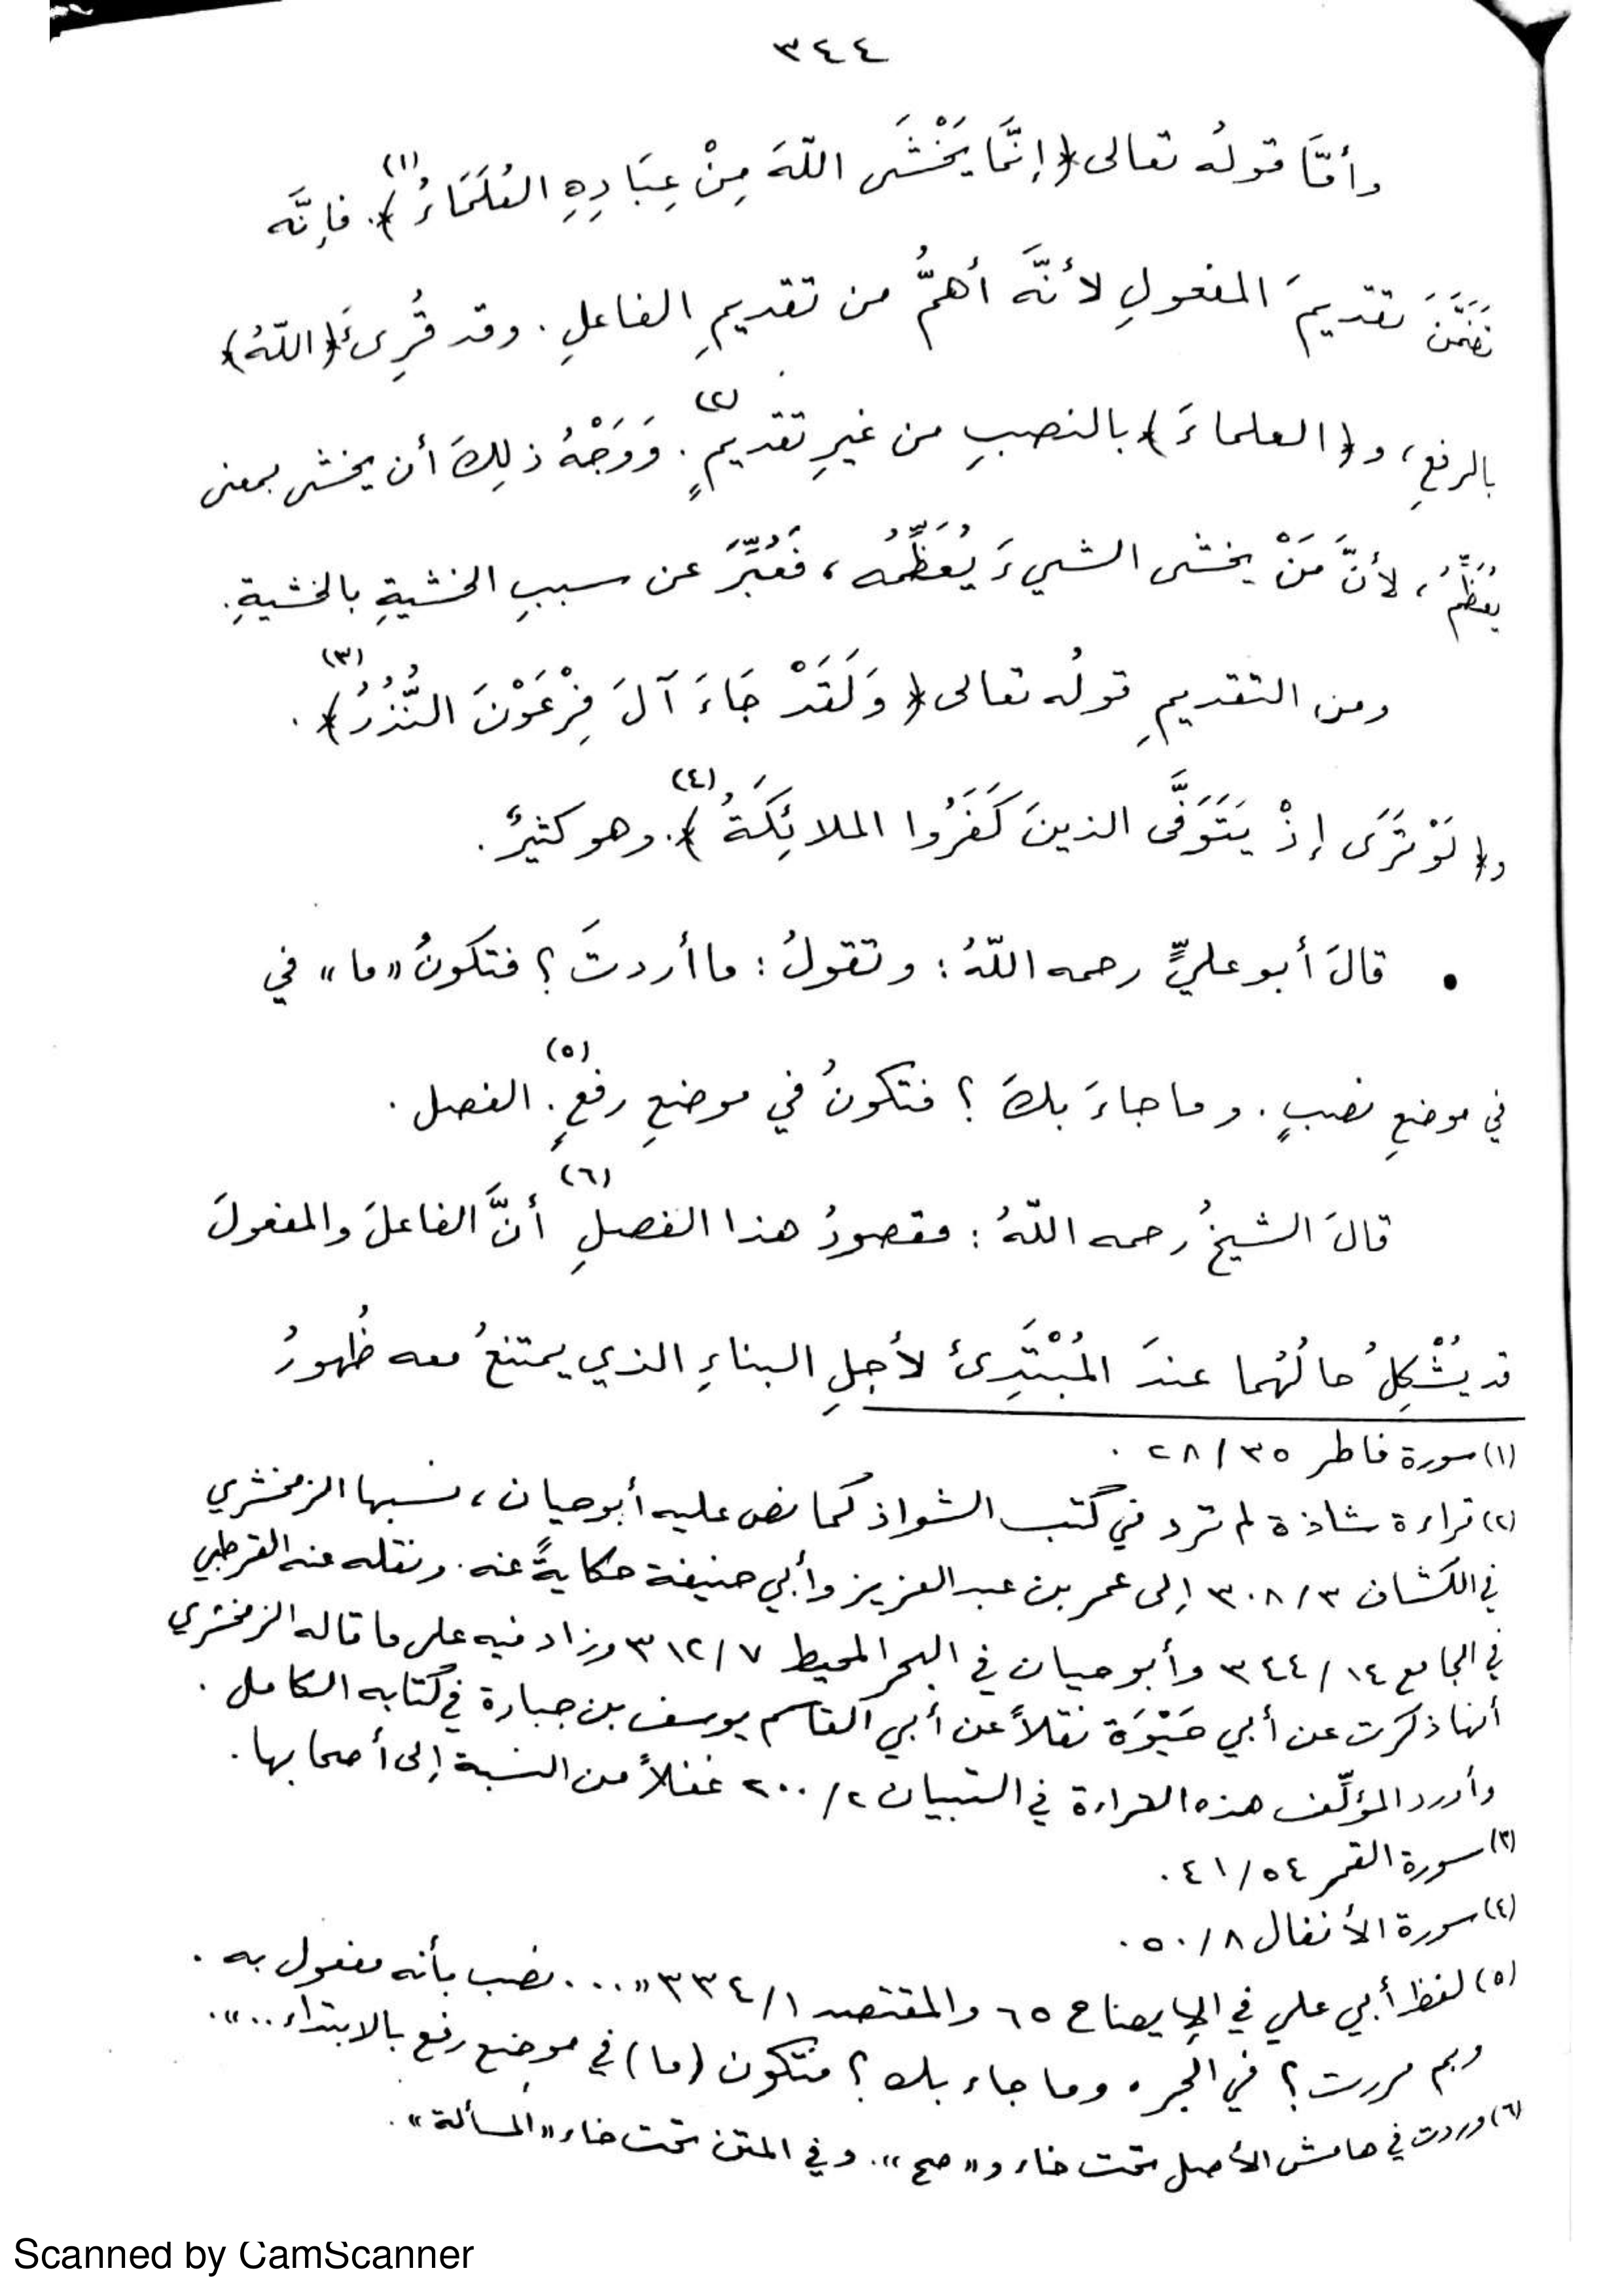 ٣٤٤
وأمَّا قولُه تعالى ﴿إنَّمَا يَخْشَى اللّهَ مِنْ عِبَادِهِ العُلَمَاءُ﴾(١). فإنَّه
تَضَمَّنَ تقديمَ المفعولِ لأنَّه أهمُّ من تقديمِ الفاعلِ. وقد قُرِئَ ﴿اللّهُ﴾
بالرفعِ، و﴿العلماءَ﴾ بالنصبِ من غيرِ تقديمٍ(٢). وَوَجْهُ ذلِكَ أن يخشى بمعنى
يُعَظِّمُ، لأنَّ مَنْ يخشى الشيءَ يُعَظِّمُه، فَعُبِّرَ عن سببِ الخشيةِ بالخشيةِ.
ومن التقديمِ قولُه تعالى ﴿وَلَقَدْ جَاءَ آلَ فِرْعَوْنَ النُّذُرُ﴾(٣).
و﴿لَوْ تَرَى إذْ يَتَوَفَّى الذينَ كَفَرُوا الملائِكَةُ﴾(٤). وهو كثيرٌ.
• قالَ أبو عليٍّ رحمه اللّهُ: وتقولُ: ما أردتَ؟ فتكونُ «ما» في
في موضعِ نصبٍ. وما جاءَ بكَ؟ فتكونُ في موضعِ رفعٍ(٥). الفصل.
قالَ الشيخُ رحمه اللّهُ: مقصودُ هذا الفصلِ(٦) أنَّ الفاعلَ والمفعولَ
قد يُشْكِلُ حالُهُما عندَ المُبْتَدِئ لأجلِ البناءِ الذي يمتنعُ معه ظُهورُ
(١) سورة فاطر ٢٨/٣٥.
(٢) قراءة شاذة لم ترد في كتب الشواذ كما نص عليه أبو حيان، نسبها الزمخشري
في الكشاف ٣٠٨/٣ إلى عمر بن عبد العزيز وأبي حنيفة حكايةً عنه. ونقله عنه القرطبي
في الجامع ٣٤٤/١٤ وأبو حيان في البحر المحيط ٣١٢/٧ وزاد فيه على ما قاله الزمخشري
أنها ذكرت عن أبي حَيْوَة نقلاً عن أبي القاسم يوسف بن جبارة في كتابه الكامل.
وأورد المؤلِّف هذه القراءة في التبيان ٢٠٠/٢ غفلاً من النسبة إلى أصحابها.
(٣) سورة القمر ٤١/٥٤.
(٤) سورة الأنفال ٥٠/٨.
(٥) لفظ أبي علي في الإيضاح ٦٥ والمقتصد ٣٣٤/١ «... نصب بأنه مفعول به.
وبم مررت؟ في الجر. وما جاء بك؟ فتكون (ما) في موضع رفع بالابتداء..».
(٦) وردت في هامش الأصل تحت خاء و«صح». وفي المتن تحت خاء «المسألة».
Scanned by CamScanner